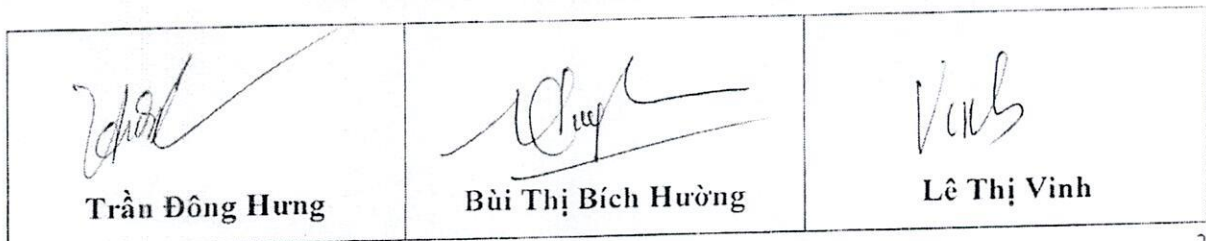 Vinh
Trần Đông Hưng
Bùi Thị Bích Hường
Lê Thị Vinh
2